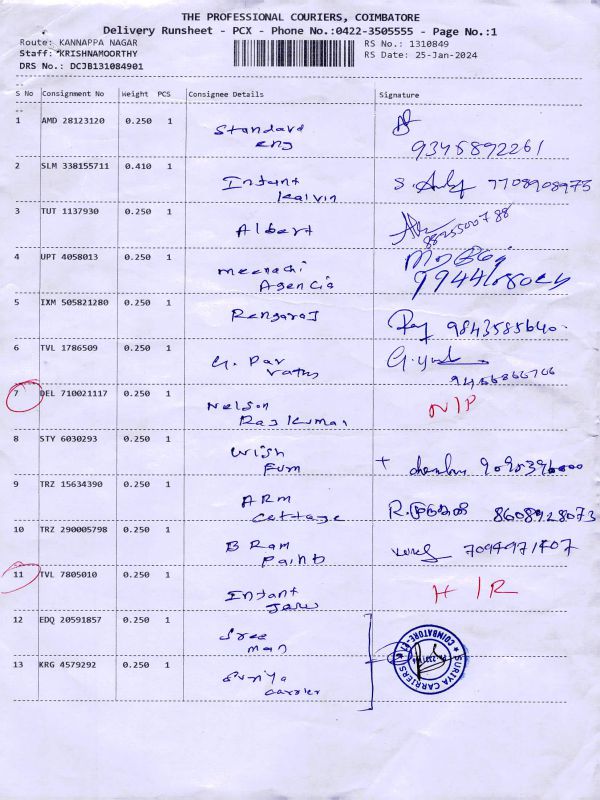 THE PROFESSIONAL COURIERS, COIMBATORE
Delivery Runsheet - PCX - Phone No.:0422-3505555 - Page No.:1
Route: KANNAPPA NAGAR RS No.: 1310849
Staff: *KRISHNAMOORTHY RS Date: 25-Jan-2024
DRS No.: DCJB131084901
S No Consignment No Weight PCS Consignee Details Signature
1 AMD 28123120 0.250 1 Standard
eng 9345892261
2 SLM 338155711 0.410 1 Infant
Kalvin 7708908975
3 TUT 1137930 0.250 1 Albert 8825500788
4 UPT 4058013 0.250 1 Meenachi
Agencia
5 IXM 505821280 0.250 1 Rengaraj Raj 9843585640.
6 TVL 1786509 0.250 1 G. Par
vathy
7 DEL 710021117 0.250 1 Nelson
Rajkumar N/P
8 STY 6030293 0.250 1 Wish
Fum
9 TRZ 15634390 0.250 1 ARM
Cottage 8608928073
10 TRZ 290005798 0.250 1 B Ram
Paint 7094971407
11 TVL 7805010 0.250 1 Infant H/R
12 EDQ 20591857 0.250 1 Sree
man
13 KRG 4579292 0.250 1 Suriya
Carrier
SURIYA CARRIERS
COIMBATORE